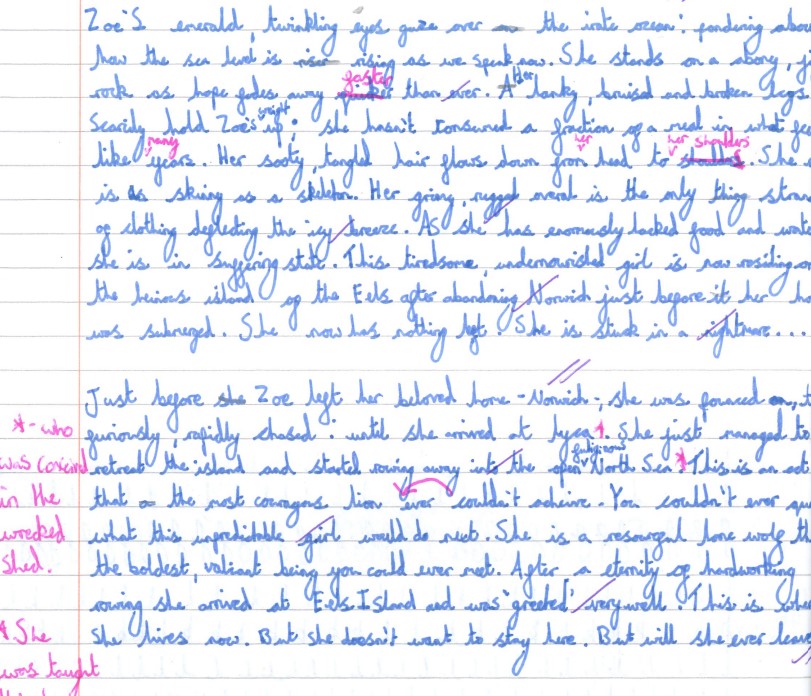 Zoe's emerald, twinkling eyes gaze over the irate ocean: pondering abou
how the sea level is riser rising as we speak now. She stands on a abony, j
faster
rock as hope fades away quicker than ever. At her lanky, bruised and broken legs
weight
Scarily hold Zoe's up; she hasn't consumed a fraction of a meal in what fee
many her her shoulders
like years. Her sooty, tangled hair flows down from head to shoulders. She
is as skinny as a skeleton. Her grimy, rugged overal is the only thing
of clothing deflecting the icy breeze. As she has enormously lacked food and wate
she is in suffering state. This tiredsome, undernourished girl is now residing on
the heinous island of the Eels after abandoning Norwich just before it her ho
was submerged. She now has nothing left. She is stuck in a nightmare...
Just before she Zoe left her beloved home - Norwich -, she was
furiously, rapidly chased: until she arrived at 1. She just managed to
* - who
was coxed
in the
wrecked
Shed.
retreat the island and started rowing away into the open North Sea * This is an act
that the most courageous lion ever couldn't acheive. You couldn't ever
what this unpredictable girl would do next. She is a resourceful lone wolf th
the boldest, valiant being you could ever meet. After a eternity of hardworking
rowing she arrived at Eels Island and was "greeted" very well. This is whe
She lives now. But she doesn't want to stay here. But will she ever leave
She
was taught